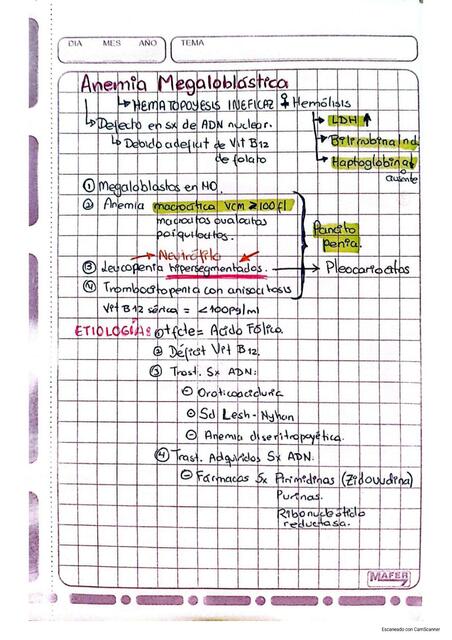 DIA MES AÑO TEMA
Anemia Megaloblástica
↳ HEMATOPOYESIS INEFICAZ Hemólisis
↳ Defecto en sx de ADN nuclear.
↳ LDH ↑
↳ Debido a deficit de Vit B12
de folato
↳ Bilirrubina Ind.
↳ Haptoglobina
ausente
① Megaloblastos en MO.
② Anemia macrocítica VCM ≥ 100 fl
macrocitos ovalocitos
poiquilocitos.
Pancito
penia.
Neutrófilo
③ Leucopenia hipersegmentados. → Pleocariocitos
④ Trombocitopenia con anisocitosis
Vit B12 sérica = <100pg/ml
ETIOLOGÍAS ① +fcte = Acido Fólico.
② Déficit Vit B12.
③ Trast. Sx ADN:
⊖ Oroticoaciduria
⊖ Sd Lesh-Nyhan
⊖ Anemia diseritropoyética.
④ Trast. Adquiridos Sx ADN.
⊖ Fármacos Sx Pirimidinas (Zidovudina)
Purinas.
Ribonucleótido
reductasa.
MAFER
Escaneado con CamScanner